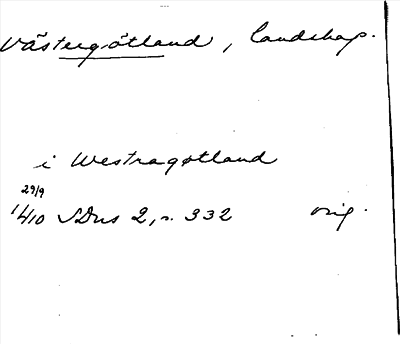 Västergötland, landskap.
i Westragøtland
29/9
1410 SDns 2, s. 332 orig.